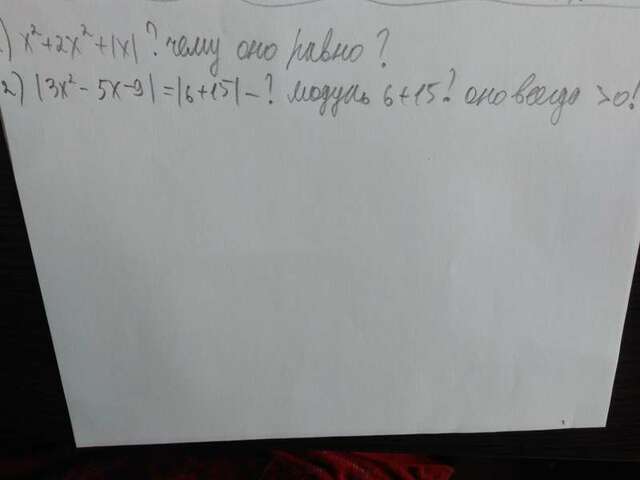 ) x² + 2x² + |x| ? чему оно равно?
2) |3x² - 5x - 9| = |6 + 15| - ? модуль 6 + 15? оно всегда >0!